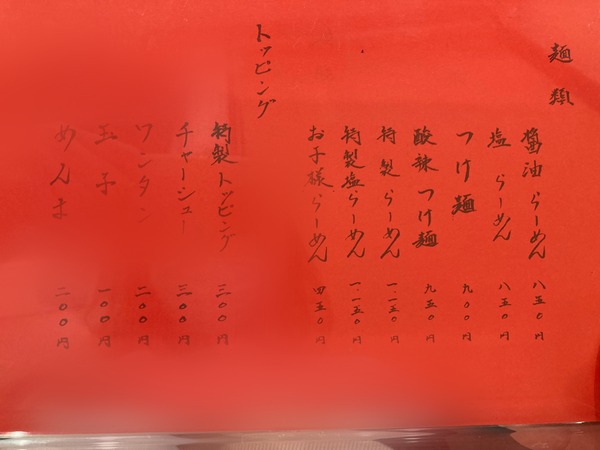 麺類
醤油らーめん 八五〇円
塩らーめん 八五〇円
つけ麺 九〇〇円
酸辣つけ麺 九五〇円
特製らーめん 一一五〇円
特製塩らーめん 一一五〇円
お子様らーめん 四五〇円
トッピング
特製トッピング 三〇〇円
チャーシュー 三〇〇円
ワンタン 二〇〇円
玉子 一〇〇円
めんま 二〇〇円